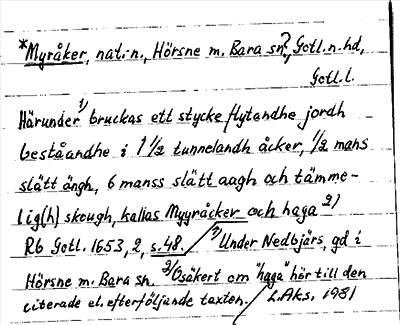 *Myråker, nat.-n., Hörsne m. Bara sn?, Gotl. n. hd,
Gotl. l.
Härunder 1) bruckas ett stycke flytandhe jordh
beståandhe i 1 1/2 tunnelandh åcker, 1/2 mans
slätt ängh, 6 manss slätt aagh och tämme-
lig(h) skough, kallas Myyråcker och haga 2)
Rb Gotl. 1653, 2, s. 48. / 1) Under Nedbjärs, gd i
Hörsne m. Bara sn. 2) Osäkert om "haga" hör till den
citerade el. efterföljande texten. / L. Aks. 1981